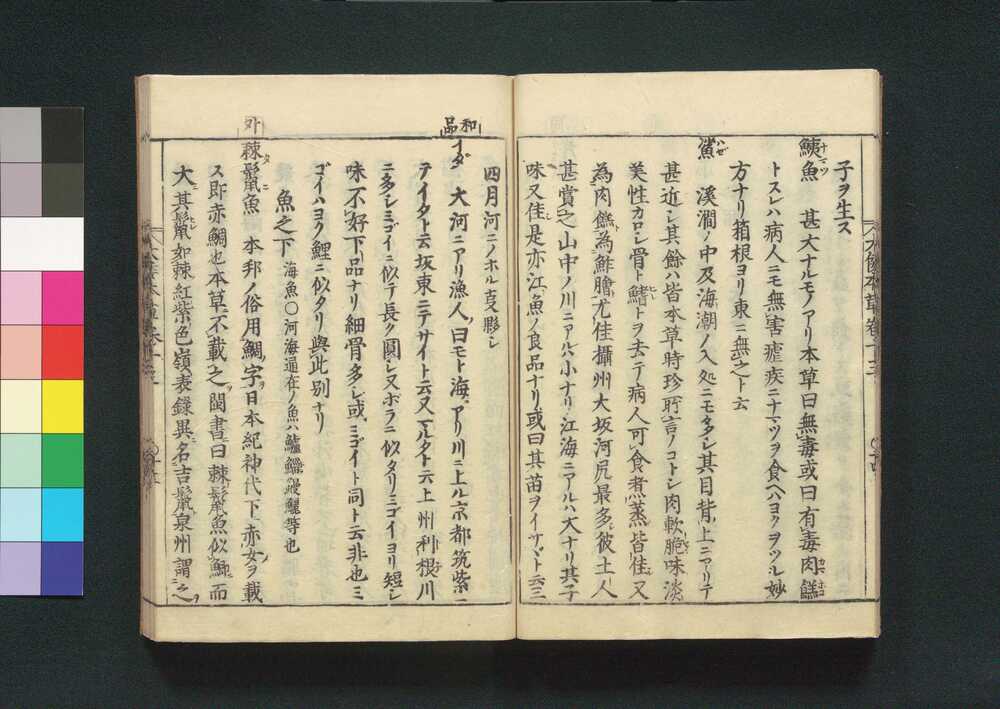 子ヲ生ス
鮧魚 ナマツ 甚大ナルモノアリ本草曰無毒或曰有毒肉餻 カマホコ
トスレハ病人ニモ無害瘧疾ニナマツヲ食ヘハヨクヲツル妙
方ナリ箱根ヨリ東ニ無之ト云
鯊 ハゼ 溪澗ノ中及海潮ノ入処ニモ多シ其目背上ニアリテ
甚近シ其餘ハ皆本草時珍所言ノコトシ肉軟脆味淡
美性カロシ骨ト鰭トヲ去テ病人可食煮蒸皆佳又
為肉餻為鮓膾尤佳攝州大坂河尻最多彼土人
甚賞之山中ノ川ニアルハ小ナリ江海ニアルハ大ナリ其子
味又佳シ是亦江魚ノ良品ナリ或曰其苗ヲイサヾト云三
四月河ニノホル夏夥シ
和品
イダ 大河ニアリ漁人曰モト海ニアリ川ニ上ル京都筑紫ニ
テイタト云坂東ニテサイト云又マルタト云上州利根川
ニ多シミゴイニ似テ長ク圓シ又ボラニ似タリミゴイヨリ短シ
味不好下品ナリ細骨多シ或ミゴイト同ト云非也ミ
ゴイハヨク鯉ニ似タリ與此別ナリ
魚之下 海魚〇河海通在ノ魚ハ鱸鱲鰻鱺等也
外
棘鬣魚 タヒ 本邦ノ俗用鯛字日本紀神代下ニ赤女ヲ載
ス即赤鯛也本草ニ不載之閩書曰棘鬣魚似鯽而
大其鬣如棘紅紫色嶺表録異名吉鬣泉州謂之